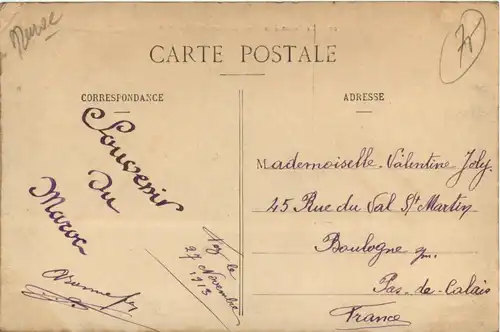 CARTE POSTALE
CORRESPONDANCE
Souvenir
du
Maroc
le
27 Novembre
1913
ADRESSE
Mademoiselle Valentine Joly
45 Rue du Val St Martin
Boulogne s/m.
Pas-de-Calais
France